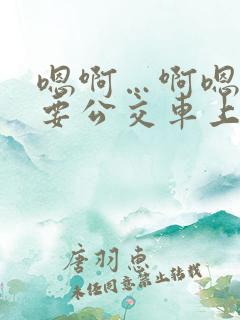 嗯啊…啊嗯
要公交车上
唐羽惠
未经同意禁止转载